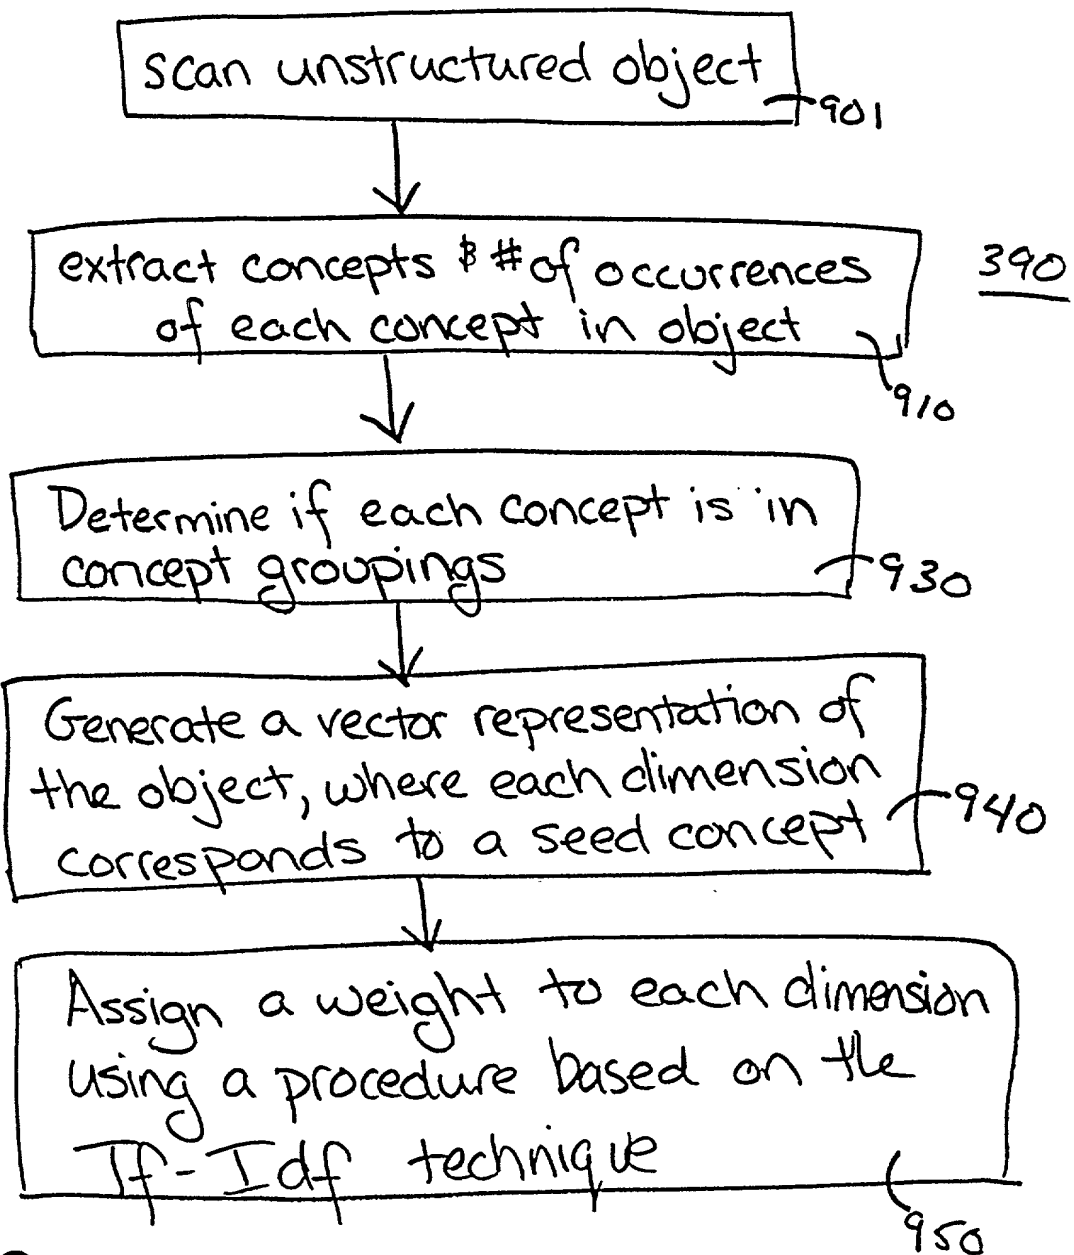 scan unstructured object
901
extract concepts & # of occurrences
of each concept in object
390
910
Determine if each concept is in
concept groupings
930
Generate a vector representation of
the object, where each dimension
corresponds to a seed concept
940
Assign a weight to each dimension
using a procedure based on the
Tf-Idf technique
950